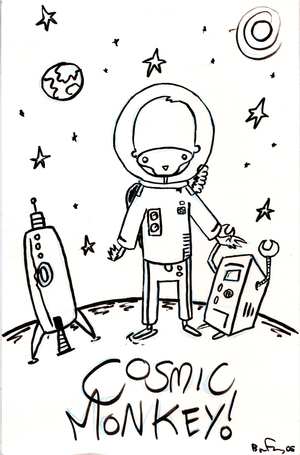 COSMIC
MONKEY!